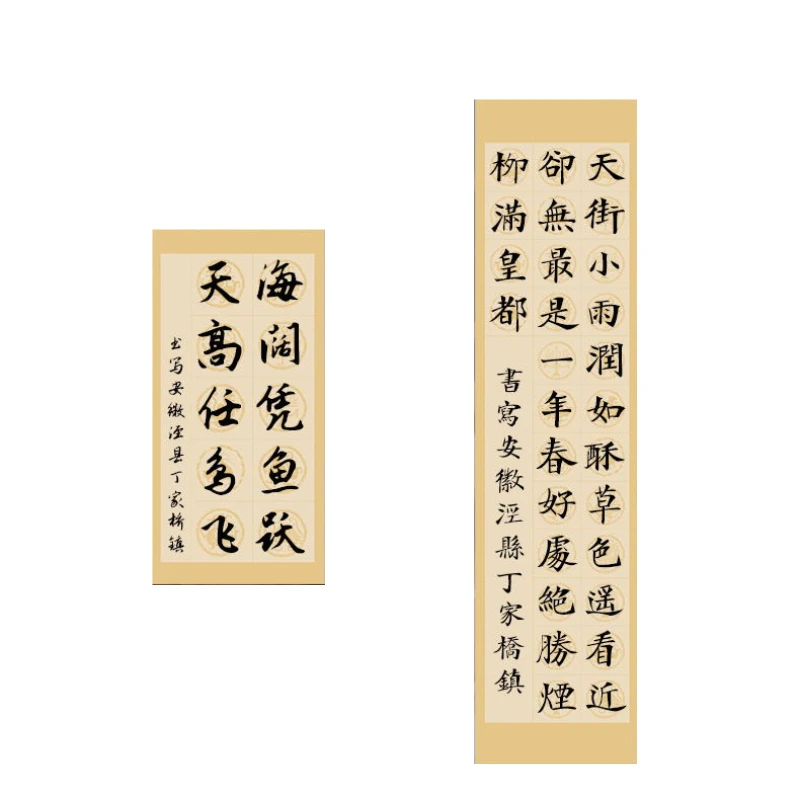 海阔凭鱼跃
天高任鸟飞
书写安徽泾县丁家桥镇
天街小雨潤如酥草色遥看近
卻無最是一年春好處絕勝煙
柳滿皇都
書寫安徽涇縣丁家橋鎮